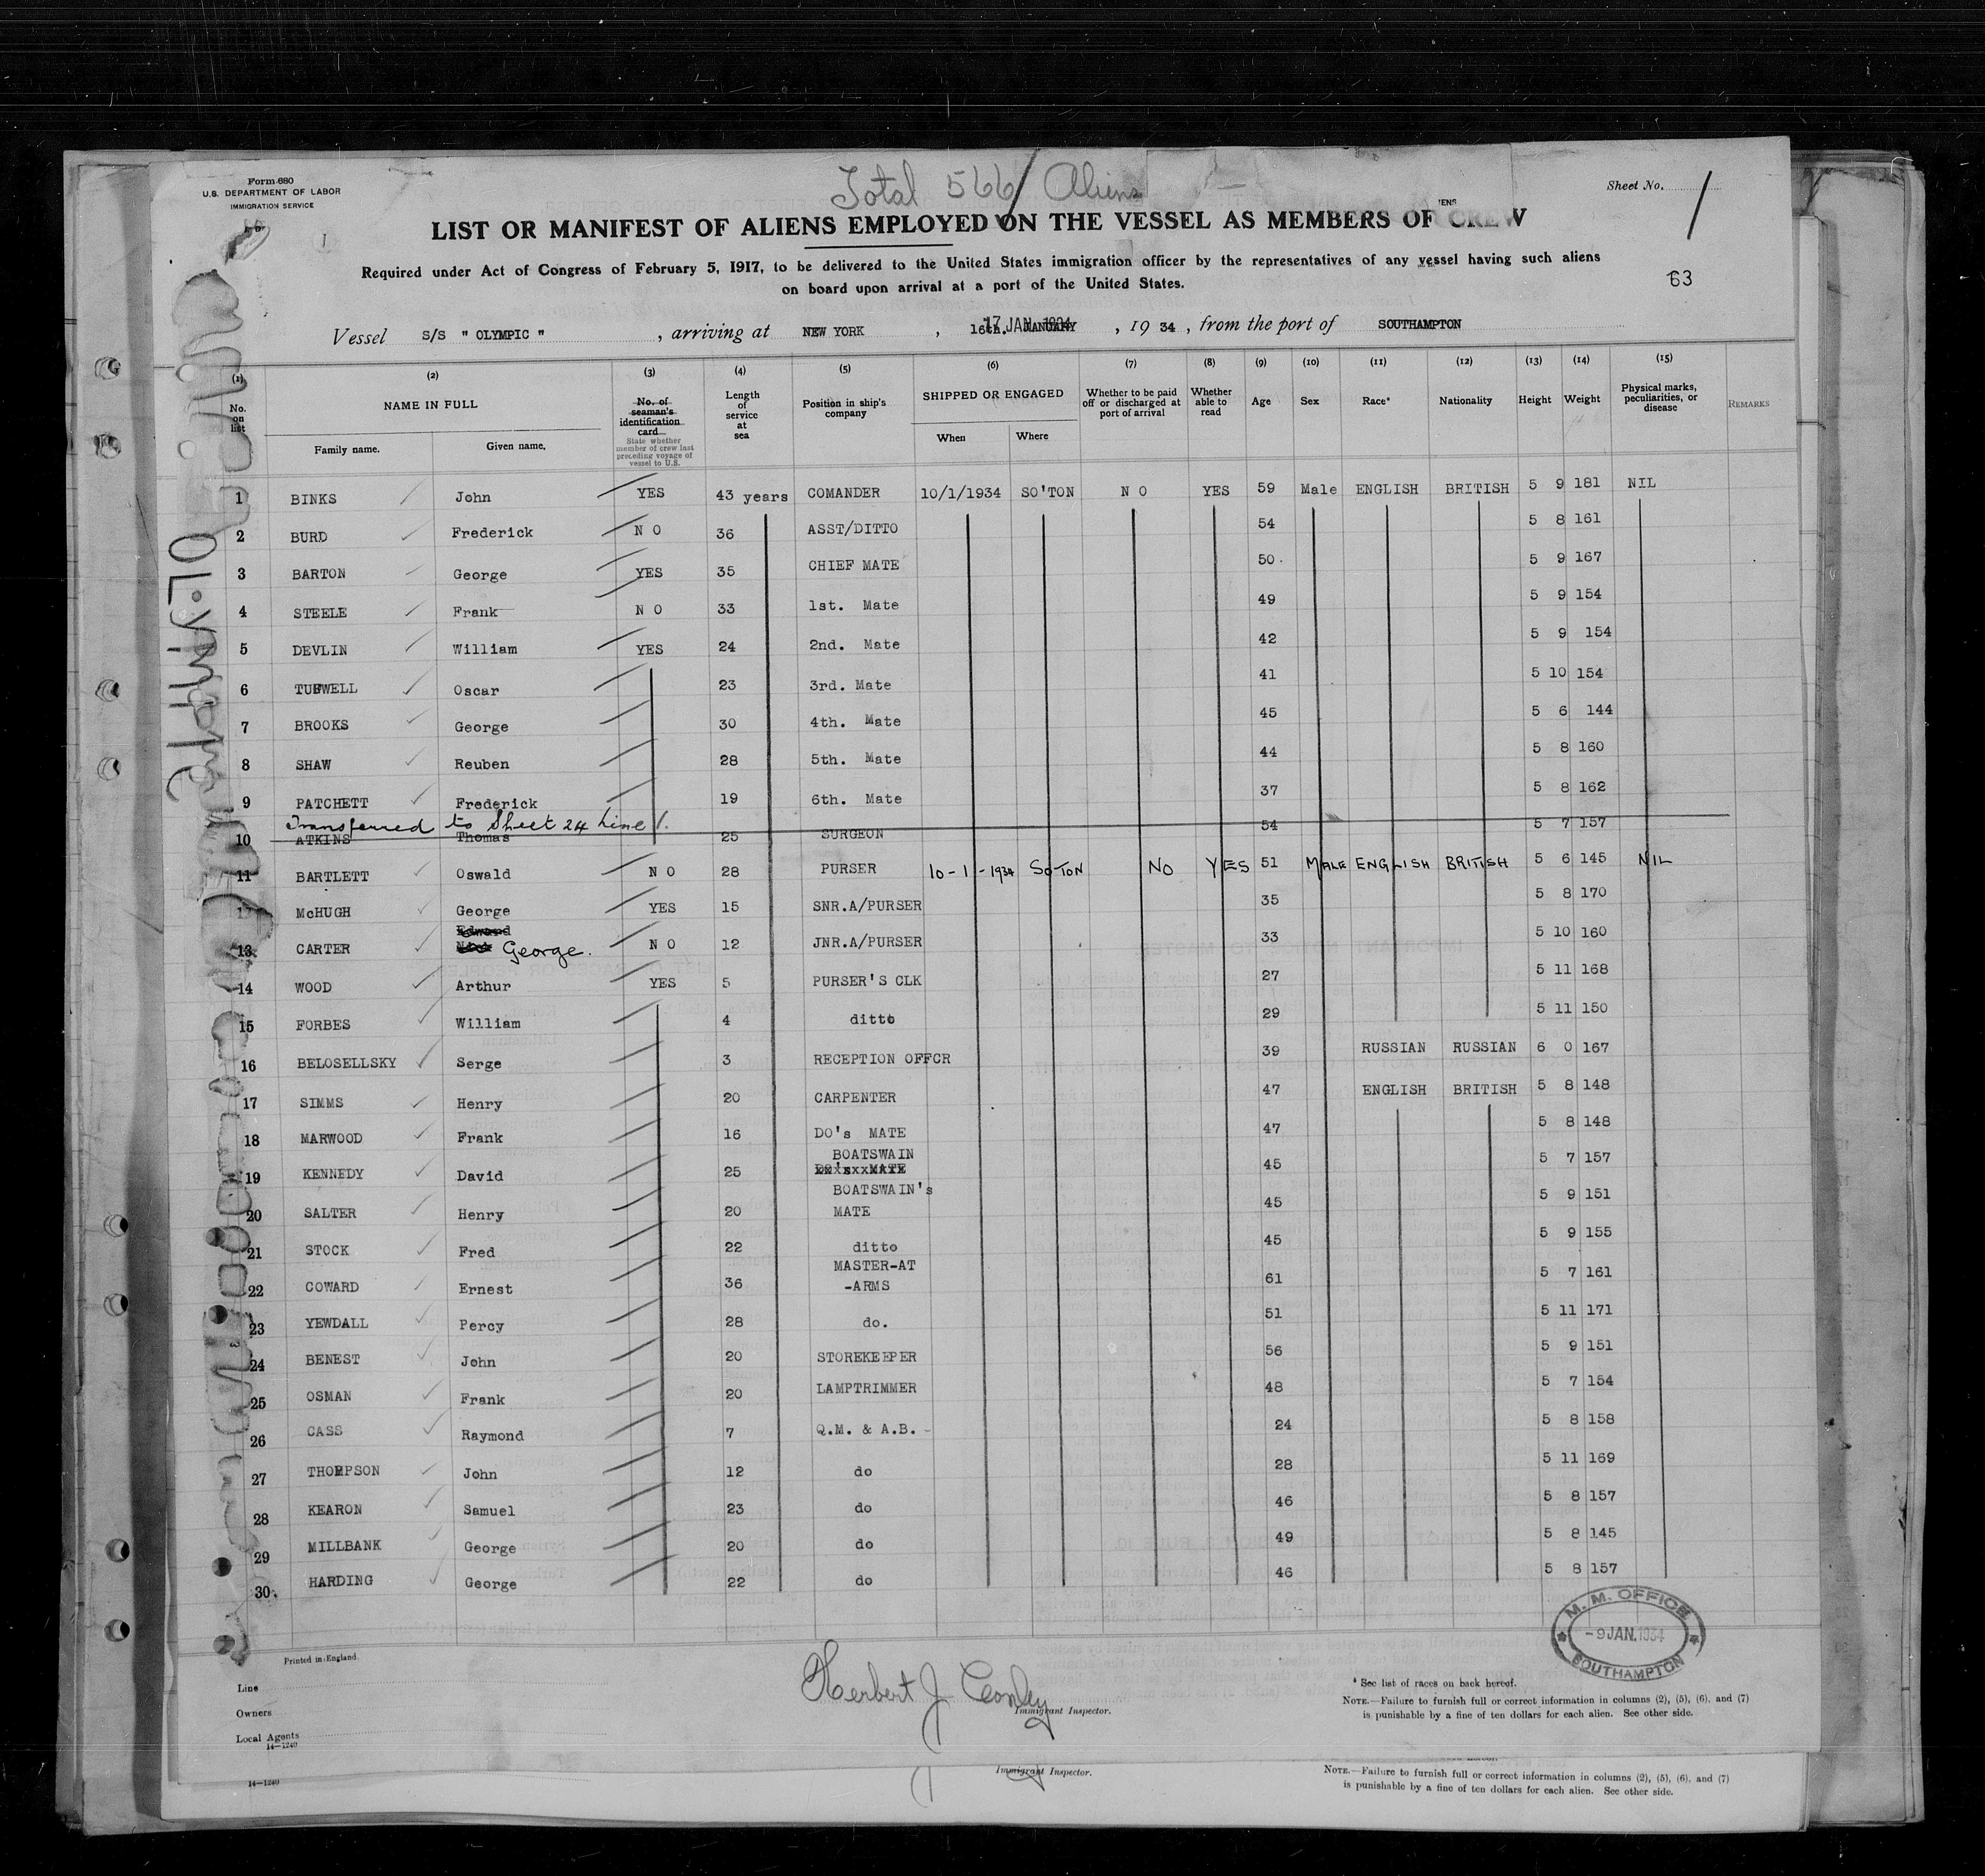 Form 680
U.S. DEPARTMENT OF LABOR
IMMIGRATION SERVICE
Total 566 Aliens
Sheet No. 1
LIST OR MANIFEST OF ALIENS EMPLOYED ON THE VESSEL AS MEMBERS OF CREW
Required under Act of Congress of February 5, 1917, to be delivered to the United States immigration officer by the representatives of any vessel having such aliens
on board upon arrival at a port of the United States.
63
Vessel S/S " OLYMPIC ", arriving at NEW YORK, 16th. JANUARY 17 JAN 1934, 1934, from the port of SOUTHAMPTON
(1) (2) (3) (4) (5) (6) (7) (8) (9) (10) (11) (12) (13) (14) (15)
No. on list
NAME IN FULL
Family name. Given name.
No. of seaman's identification card
State whether member of crew last preceding voyage of vessel to U.S.
Length of service at sea
Position in ship's company
SHIPPED OR ENGAGED
When Where
Whether to be paid off or discharged at port of arrival
Whether able to read
Age Sex Race* Nationality Height Weight
Physical marks, peculiarities, or disease
REMARKS
OLYMPIC
1 BINKS John YES 43 years COMANDER 10/1/1934 SO'TON N O YES 59 Male ENGLISH BRITISH 5 9 181 NIL
2 BURD Frederick N O 36 ASST/DITTO 54 5 8 161
3 BARTON George YES 35 CHIEF MATE 50 5 9 167
4 STEELE Frank N O 33 1st. Mate 49 5 9 154
5 DEVLIN William YES 24 2nd. Mate 42 5 9 154
6 TUFWELL Oscar 23 3rd. Mate 41 5 10 154
7 BROOKS George 30 4th. Mate 45 5 6 144
8 SHAW Reuben 28 5th. Mate 44 5 8 160
9 PATCHETT Frederick 19 6th. Mate 37 5 8 162
Transferred to Sheet 24 Line 1.
10 ATKINS Thomas 25 SURGEON 54 5 7 157
11 BARTLETT Oswald N O 28 PURSER 10-1-1934 SO-TON NO YES 51 MALE ENGLISH BRITISH 5 6 145 NIL
12 McHUGH George YES 15 SNR.A/PURSER 35 5 8 170
13 CARTER Edward George. N O 12 JNR.A/PURSER 33 5 10 160
14 WOOD Arthur YES 5 PURSER'S CLK 27 5 11 168
15 FORBES William 4 ditto 29 5 11 150
16 BELOSELLSKY Serge 3 RECEPTION OFFCR 39 RUSSIAN RUSSIAN 6 0 167
17 SIMMS Henry 20 CARPENTER 47 ENGLISH BRITISH 5 8 148
18 MARWOOD Frank 16 DO's MATE 47 5 8 148
19 KENNEDY David 25 BOATSWAIN DO's MATE 45 5 7 157
20 SALTER Henry 20 BOATSWAIN's MATE 45 5 9 151
21 STOCK Fred 22 ditto 45 5 9 155
22 COWARD Ernest 36 MASTER-AT-ARMS 61 5 7 161
23 YEWDALL Percy 28 do. 51 5 11 171
24 BENEST John 20 STOREKEEPER 56 5 9 151
25 OSMAN Frank 20 LAMPTRIMMER 48 5 7 154
26 CASS Raymond 7 Q.M. & A.B. - 24 5 8 158
27 THOMPSON John 12 do 28 5 11 169
28 KEARON Samuel 23 do 46 5 8 157
29 MILLBANK George 20 do 49 5 8 145
30. HARDING George 22 do 46 5 8 157
M. M. OFFICE
-9 JAN. 1934
SOUTHAMPTON
Printed in England
Line
Owners
Local Agents
14—1240
Herbert J. Conley
Immigrant Inspector.
* See list of races on back hereof.
NOTE.—Failure to furnish full or correct information in columns (2), (5), (6), and (7)
is punishable by a fine of ten dollars for each alien. See other side.
14—1240
Immigrant Inspector.
NOTE.—Failure to furnish full or correct information in columns (2), (5), (6), and (7)
is punishable by a fine of ten dollars for each alien. See other side.